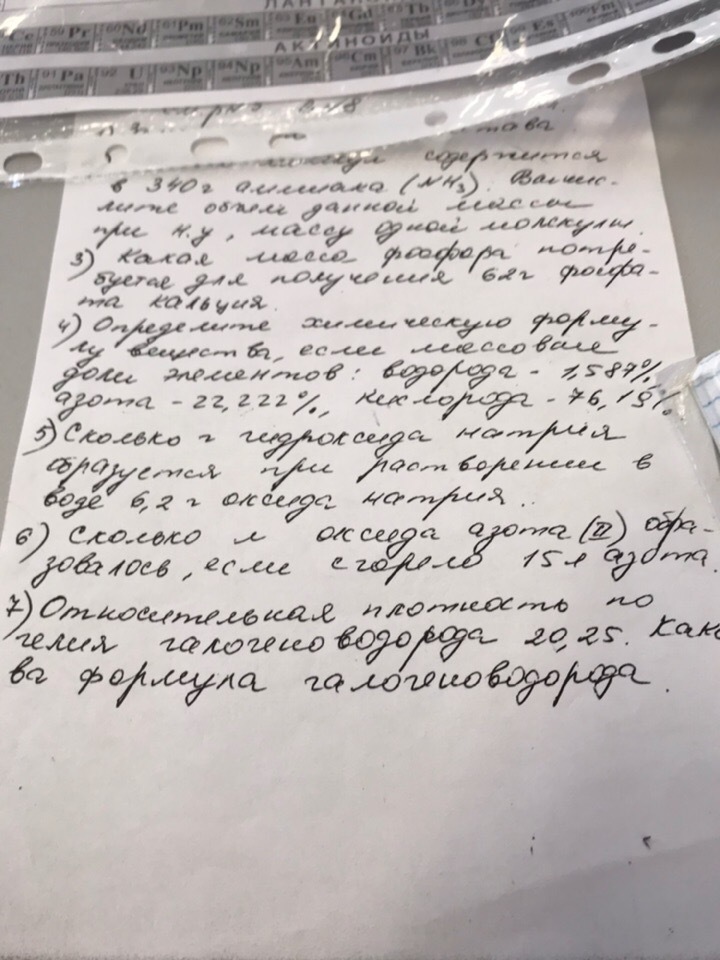 ЛАНТАНО
Ce 59 Pr 60 Nd 61 Pm 62 Sm 63 Eu Gd 65 Tb Dy
АКТИНОИДЫ
Th 91 Pa 92 U 93 Np 94 Np 95 Am 96 Cm 97 Bk 98 Cf Es 100 Fm
става
содержится
в 340 г аммиака (NH3). Вычис-
лите объем данной массы
при н.у, массу одной молекулы.
3) Какая масса фосфора потре-
буется для получения 62 г фосфа-
та кальция.
4) Определите химическую форму-
лу вещества, если массовые
доли элементов: водорода - 1,587%,
азота - 22,222%, кислорода - 76,19%.
5) Сколько г гидроксида натрия
образуется при растворении в
воде 6,2 г оксида натрия..
6) Сколько л оксида азота (II) обра-
зовалось, если сгорело 15 л азота.
7) Относительная плотность по
гелия галогеноводорода 20,25. Како
ва формула галогеноводорода.